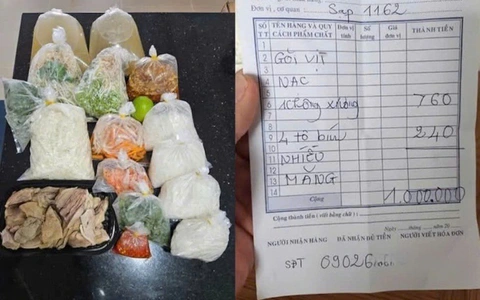 Đơn vị, cơ quan: Sap 1162
SỐ TT TÊN HÀNG VÀ QUY CÁCH PHẨM CHẤT Đơn vị tính Số lượng Giá đơn vị THÀNH TIỀN
1
2 GỎI VỊT
3
4 NẠC
5
6 1 không xương 760
7
8
9 4 tô bún 240
10
11 NHIỀU
12
13 MĂNG
14
Cộng 1.000.000
Cộng thành tiền (viết bằng chữ):
Ngày tháng năm 20
NGƯỜI NHẬN HÀNG ĐÃ NHẬN ĐỦ TIỀN NGƯỜI VIẾT HÓA ĐƠN
SĐT 09026